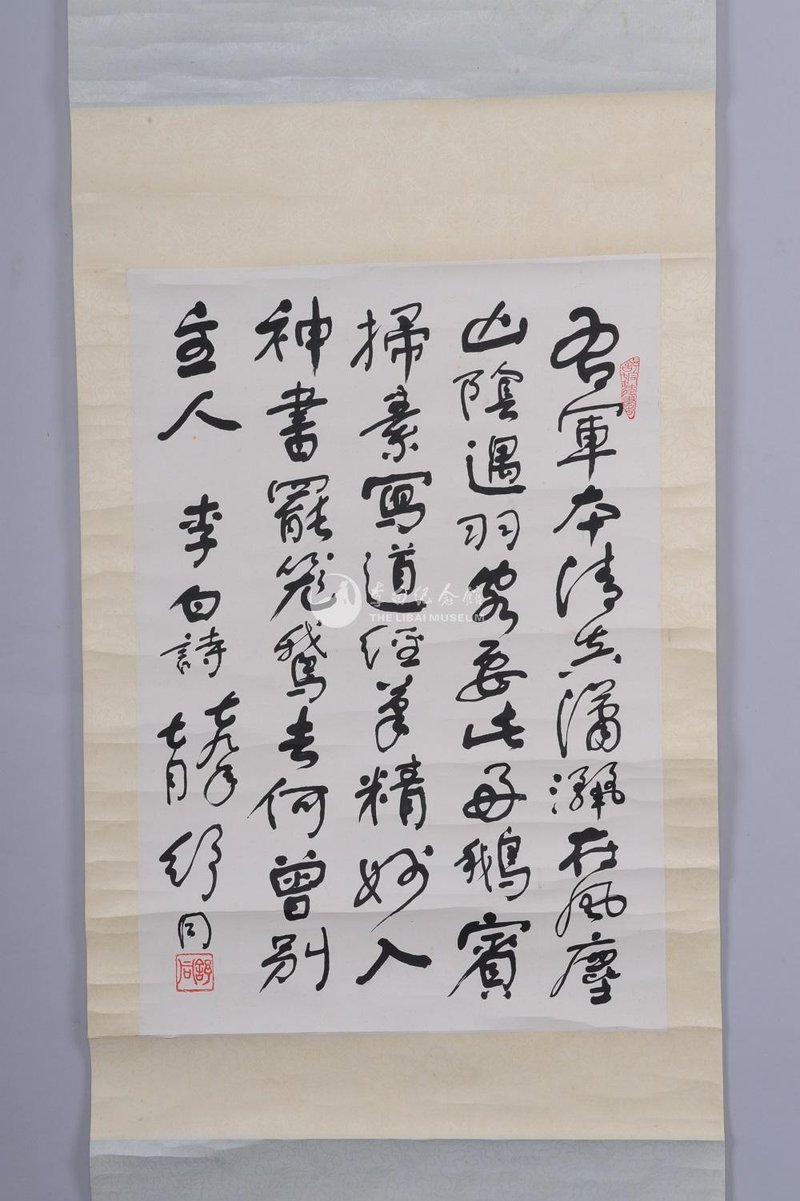 右軍本清真瀟灑在風塵
山陰遇羽客要此好鵝賓
掃素寫道經筆精妙入
神書罷籠鵝去何曾別
主人
李白詩
七九年
七月
舒同
舒同
李白纪念馆
THE LIBAI MUSEUM